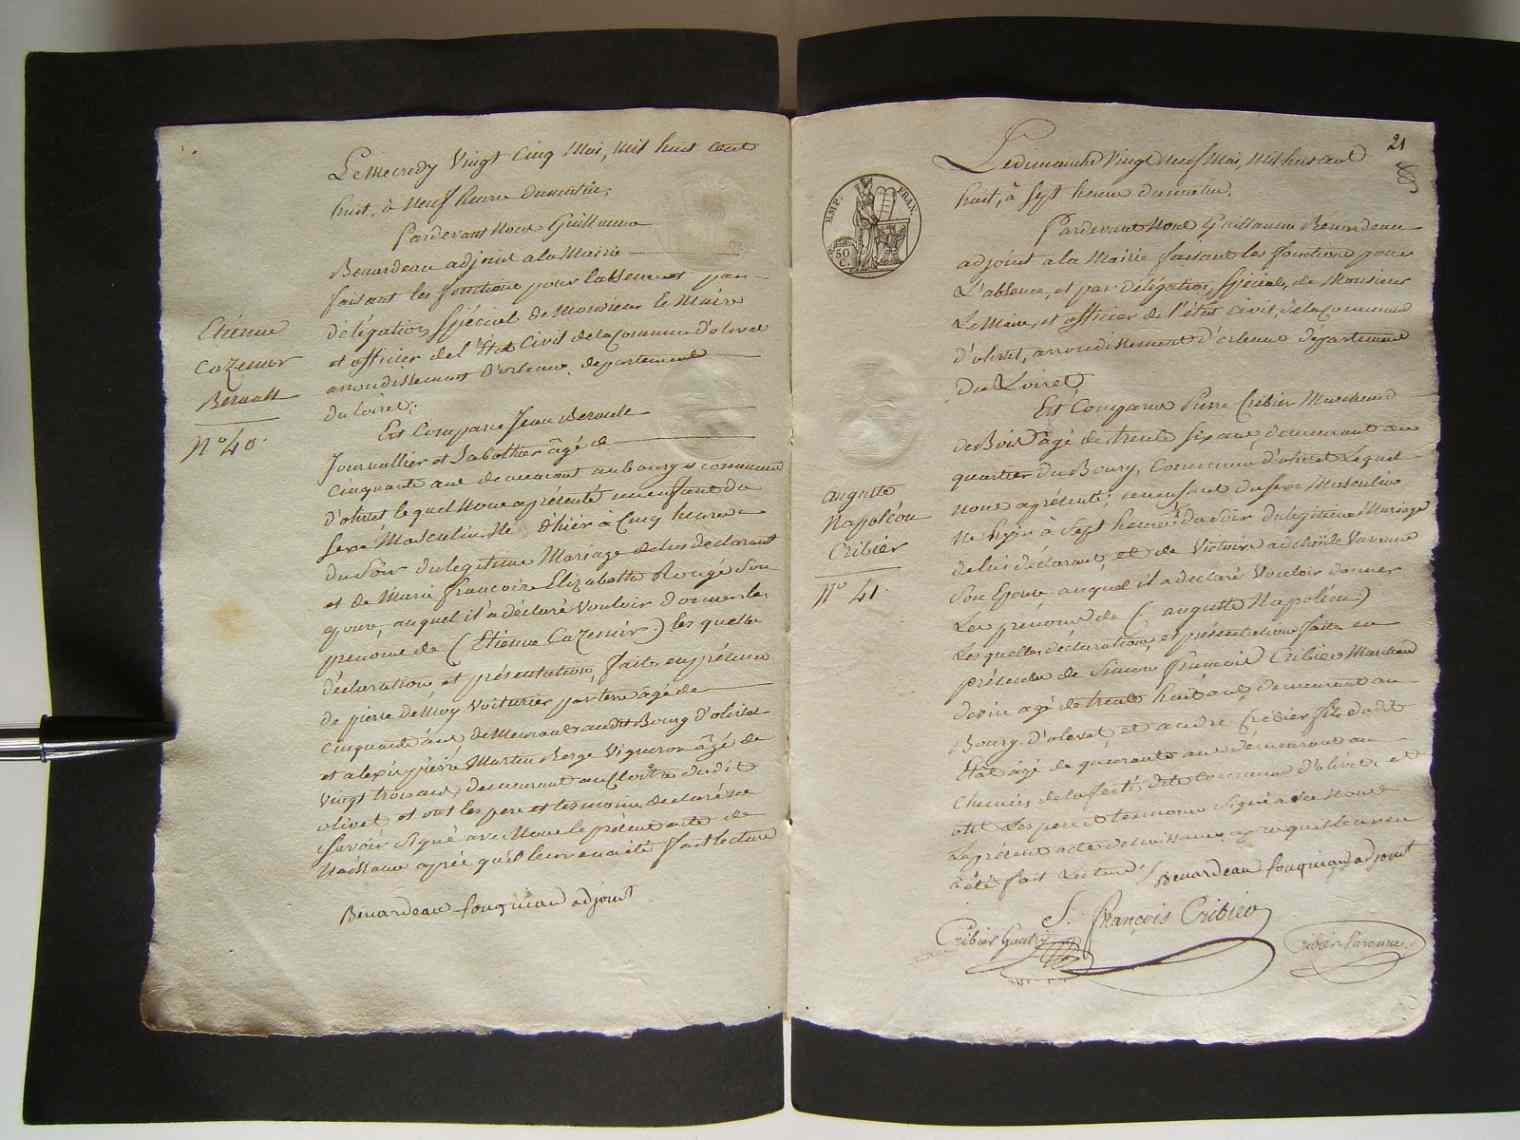 Le Mecredy Vingt Cinq Mai, mil huit cent
huit, à Neuf heure du matin;
Pardevant Nous Guillaume
Benardeau adjoint a la Mairie
faisant les fonctions pour l'absence et par
délégation spécial de Monsieur le Maire
et officier de l'état Civil de la Commune d'olivet
arrondissement d'orléans, departement
du Loiret;
Est Comparu Jean Berault
Journallier et Sabottier âgé de
cinquante ans demeurant au bourg et commune
d'olivet lequel Nous a présenté un enfant du
sexe Masculin Né d'hier à Cinq heures
du Soir du legitime Mariage de lui déclarant
et de Marie francoise Elizabette Rougé Son
epouse, auquel il a déclaré Vouloir donner les
prenoms de (Etienne Cazemir) les quelle
déclaration et présentation, faite en présence
de pierre Demuy Voiturier par terre âgé de
cinquante ans demeurant au dit Bourg d'olivet
et alexis pierre Martin Berge Vigneron âgé de
Vingt trois ans, demeurant au Cloitre du dit
olivet et ont les pere et temoins declaré ne
Savoir Signé avec Nous le présent acte de
Naissance après qu'il leur en a été fait lecture
Benardeau fouqueau adjoint
Etienne
Cazemir
Berault
N° 40.
21
EMP. FRAN.
50
C.
Le dimanche Vingt Neuf Mai, mil huit cent
huit, à Sept heure du matin.
Pardevant Nous Guillaume Benardeau
adjoint a la Mairie faisant les fonctions pour
L'absence, et par délégation, spécial, de Monsieur
Le Maire, et officier de l'état Civil, de la Commune
d'olivet, arrondissement d'orleans département
Du Loiret,
Est Comparu Pierre Cribier Marchand
de Bois âgé de trente six ans, demeurant au
quartier du Bourg, Commune d'olivet Lequel
nous a présenté; un enfant du sexe Masculin
Né hyer à Sept heures du Soir du legitime Mariage
de lui déclarant, et de Victoire adelaïde Varenne
Son Epouse, auquel il a declaré Vouloir donner
Les prenoms de (auguste Napoléon)
Les quelles déclaration, et présentation faite en
présence de Simon françois Cribier Marchand
de vin agé de trente huit ans, demeurant au
Bourg d'olivet, et andre Cribier fils du dit
Etat âgé de quarante ans demeurant au
Chemin de la ferté, dite commune d'olivet et
ont Les pere et temoins Signé avec Nous
Le présent acte de naissance, après qu'il leur en
a été fait Lecture / Benardeau fouqueau adjoint
S. françois Cribier
Cribier Guet
Cribier Varenne
auguste
Napoléon
Cribier
N° 41.